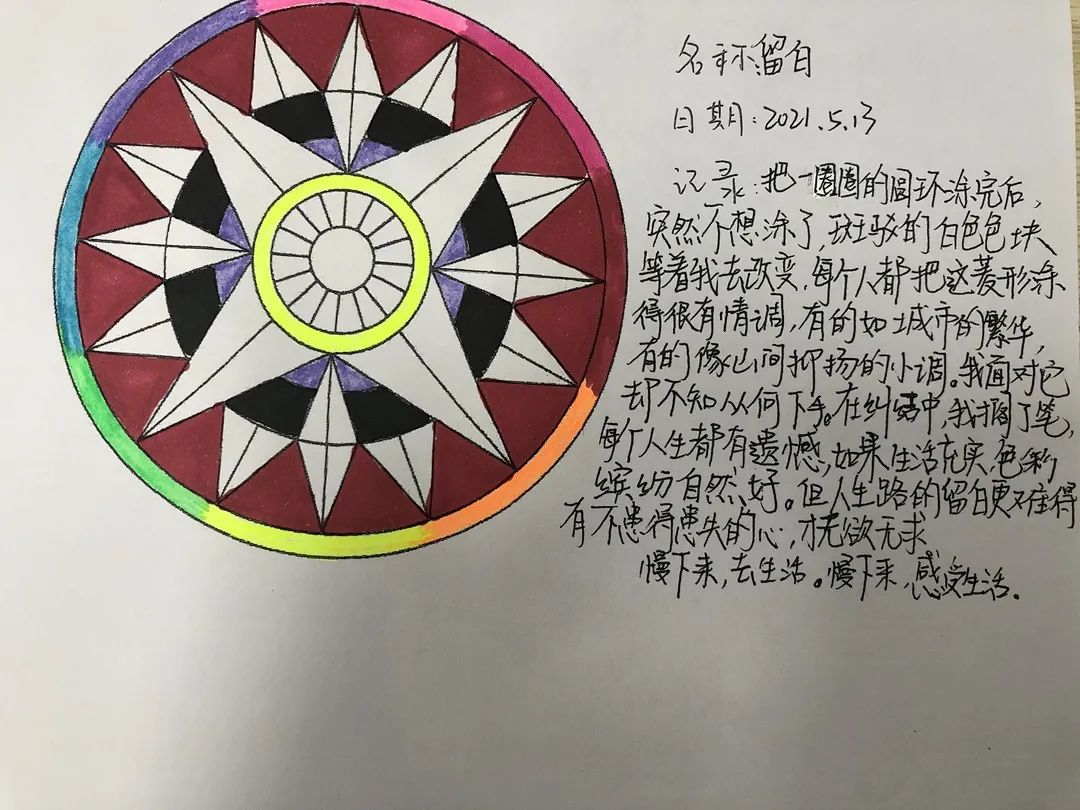 名称:留白
日期:2021.5.13
记录:把一圈圈的圆环涂完后,
突然不想涂了,斑驳的白色色块
等着我去改变,每个人都把这菱形涂
得很有情调,有的如城市的繁华,
有的像山间抑扬的小调。我面对它
却不知从何下手。在纠结中,我搁了笔,
每个人生都有遗憾,如果生活充实,色彩
缤纷自然好。但人生路的留白更难得
有不患得患失的心,才无欲无求
慢下来,去生活。慢下来,感受生活。